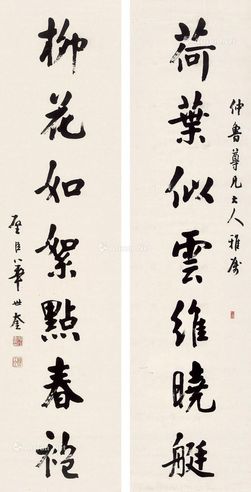 仲魯尊兄大人雅屬
荷葉似雲維曉艇
柳花如絮點春袍
華世奎